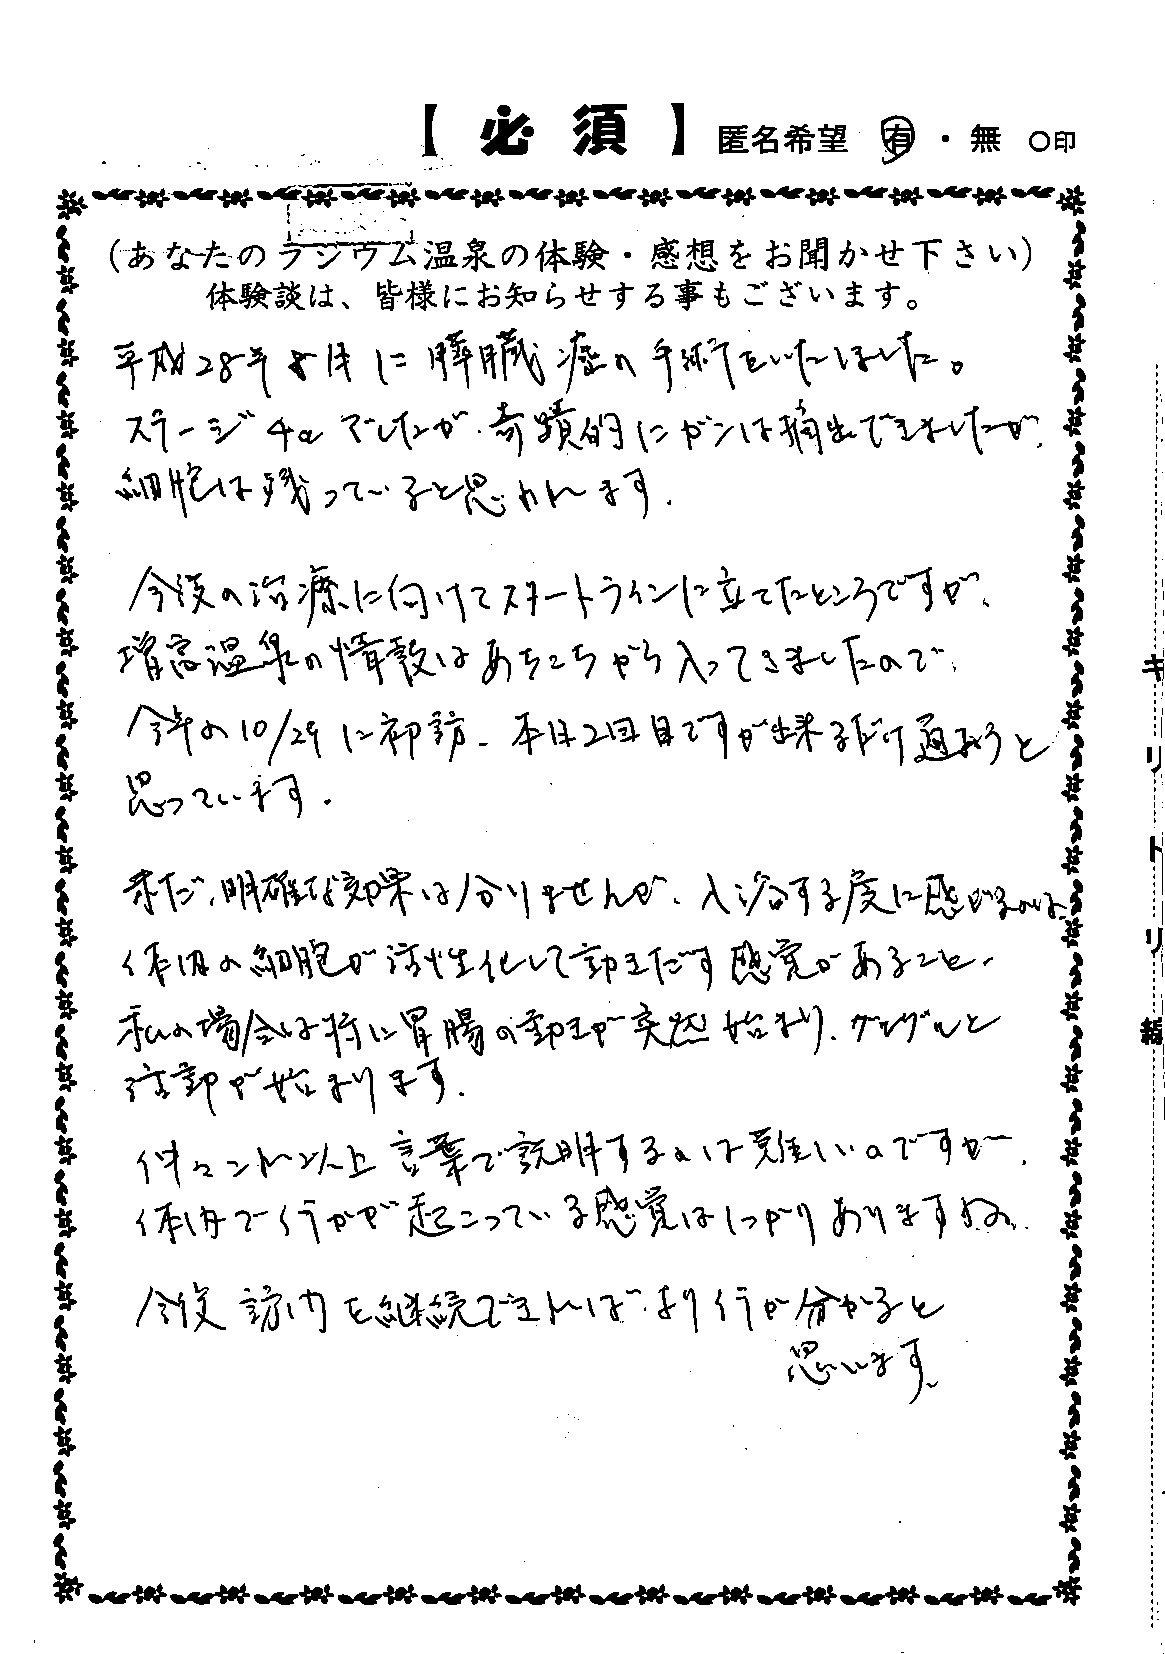 【必須】 匿名希望 有・無 ○印
(あなたのラジウム温泉の体験・感想をお聞かせ下さい)
体験談は、皆様にお知らせする事もございます。
平成28年8月に膵臓癌の手術をいたしました。
ステージ4aでしたが、奇蹟的にガンは摘出できましたが、
細胞は残っていると思われます.
今後の治療に向けてスタートラインに立てたところですが、
増富温泉の情報はあちこちから入ってきましたので、
今年の10/29に初訪、本日2回目ですが出来るだけ通おうと
思っています.
未だ、明確な効果は分りませんが、入浴する度に感じるのは、
体内の細胞が活性化して動きだす感覚があること、
私の場合は特に胃腸の動きが突然始まり、グルグルと
活動が始まります.
これ以上言葉で説明するのは難しいのですが、
体内で何かが起こっている感覚はしっかりありますね。
今後訪問を継続できれば、より何か分かると
思います、
キリトリ線